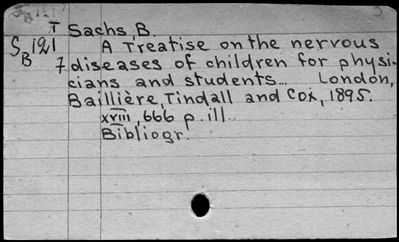 T Sachs, B.
S 121 A Treatise on the nervous
B 7 diseases of children for physi-
cians and students... London,
Baillière, Tindall and Cox, 1895.
xviii, 666 p. ill.
Bibliogr.